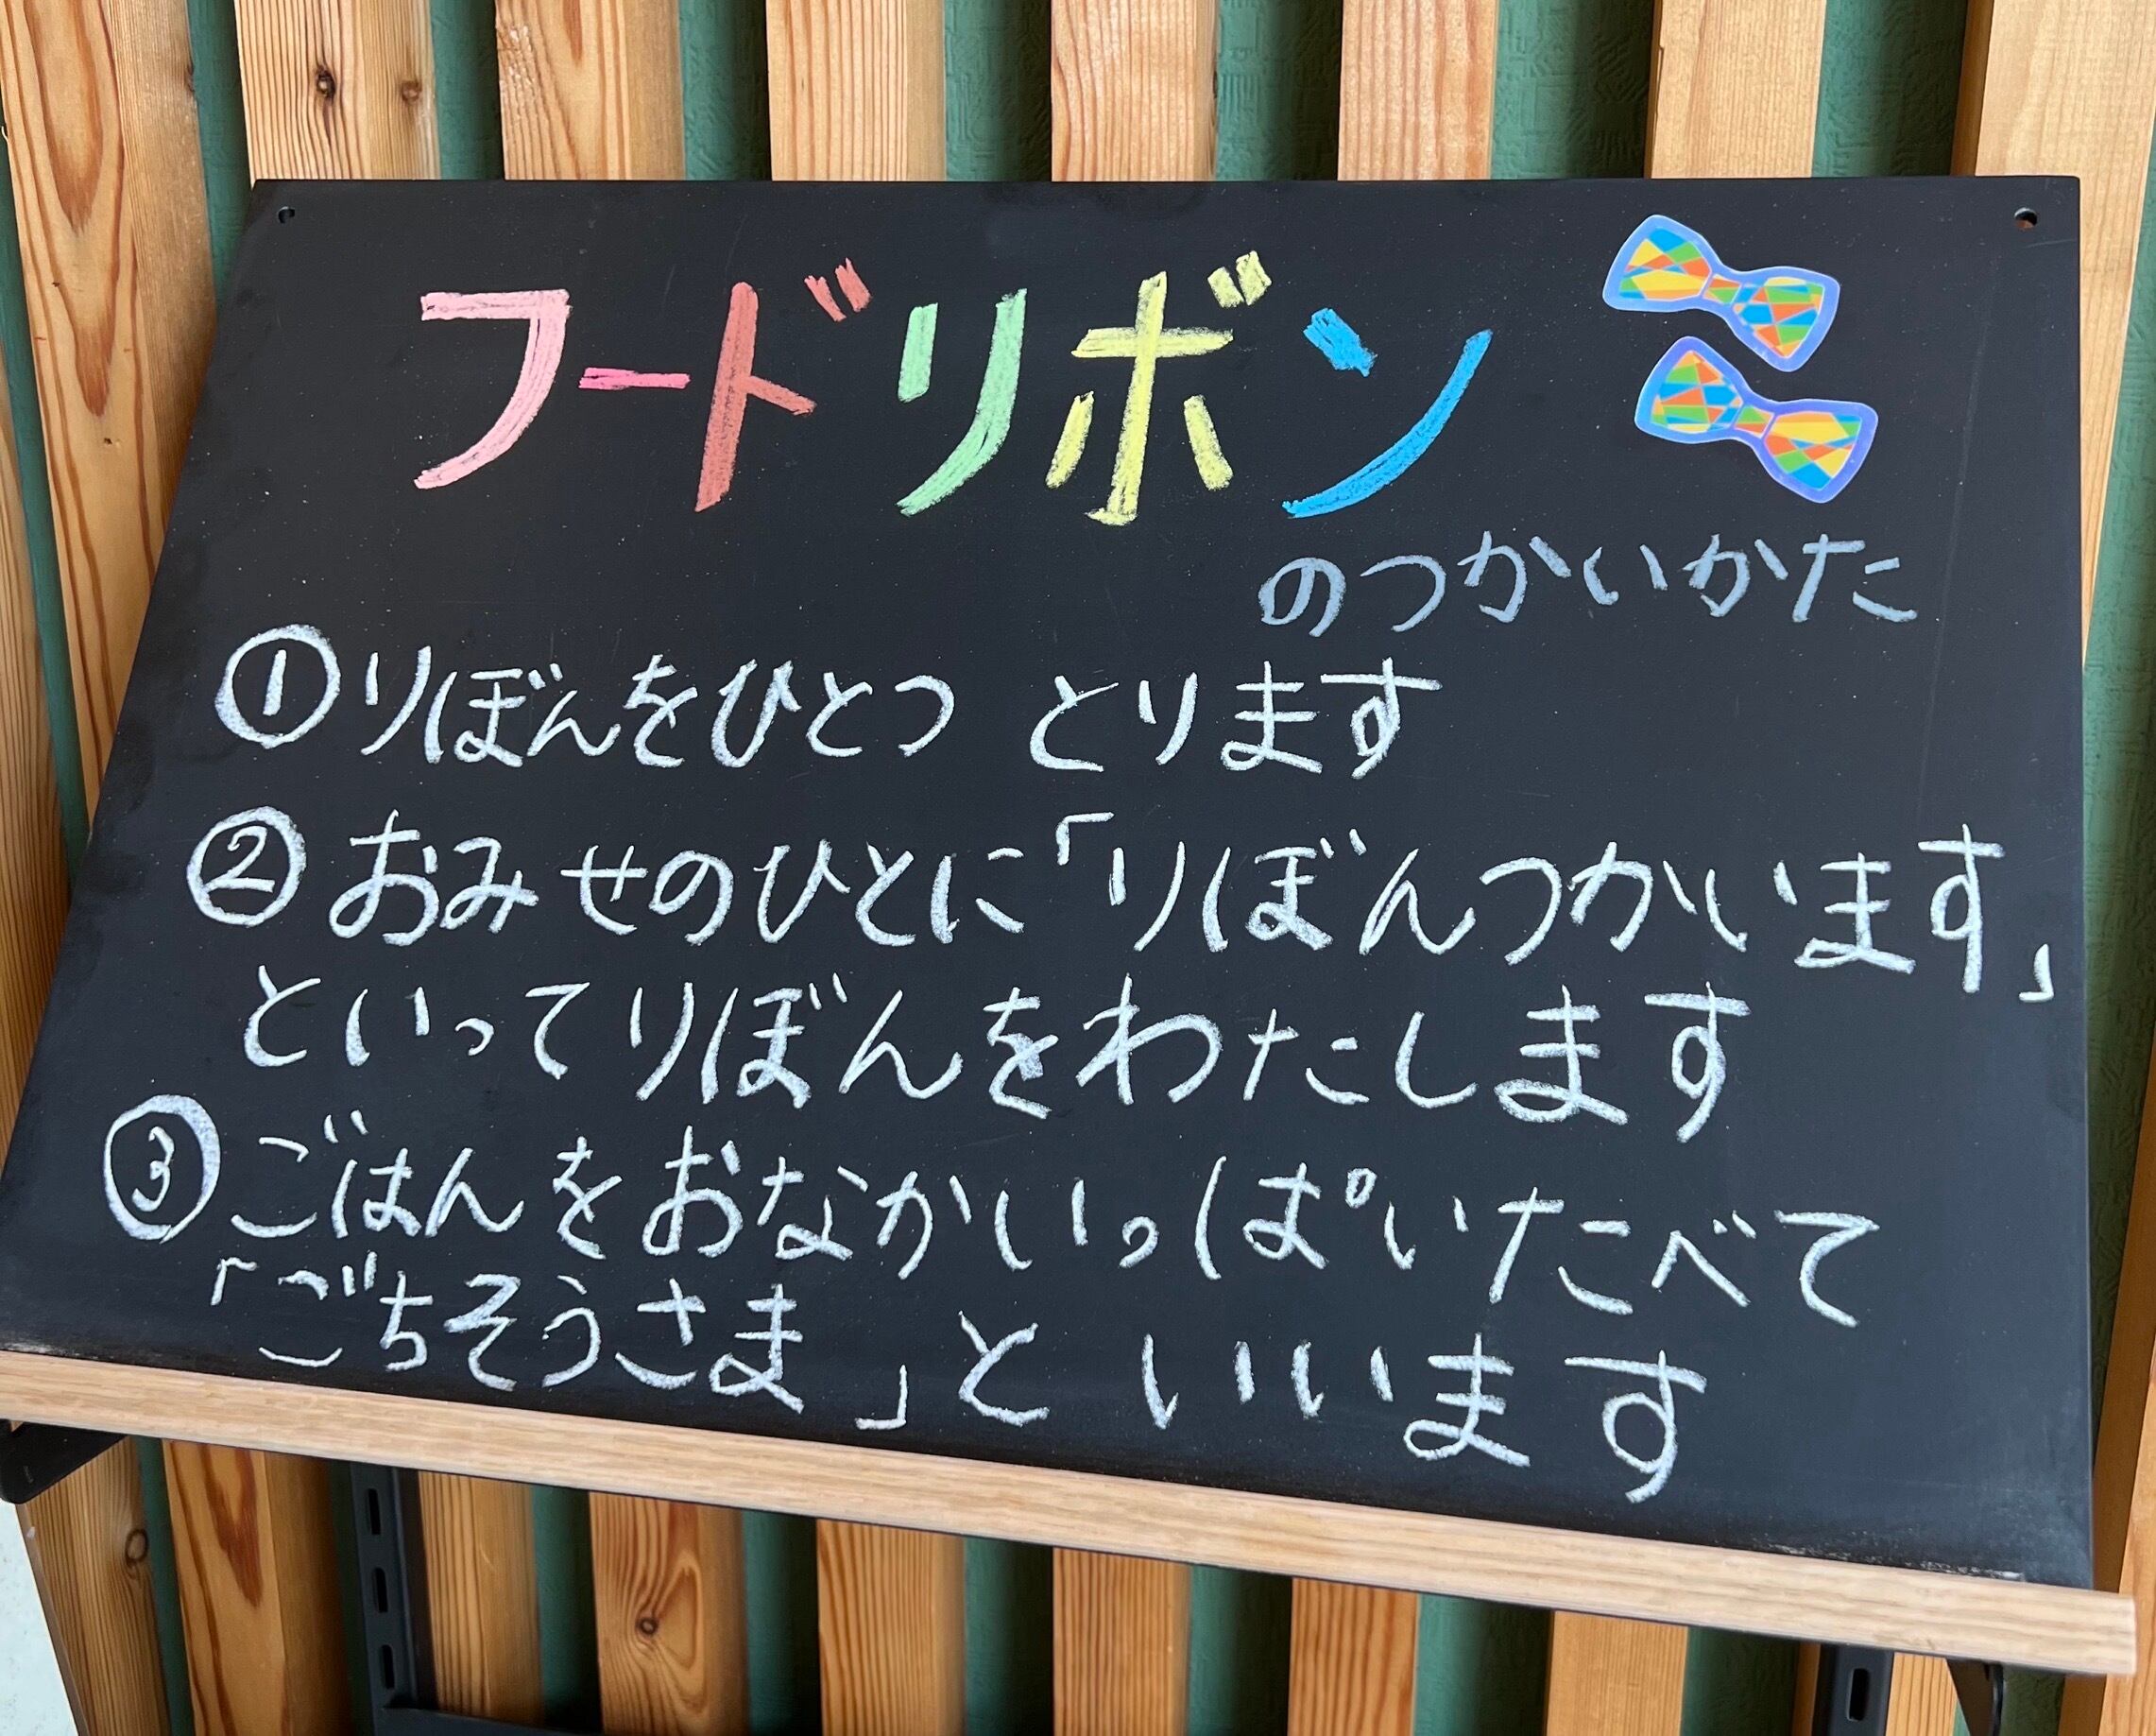 フードリボン
のつかいかた
①りぼんをひとつ とります
②おみせのひとに「りぼんつかいます」
といってりぼんをわたします
③ごはんをおなかいっぱいたべて
「ごちそうさま」といいます